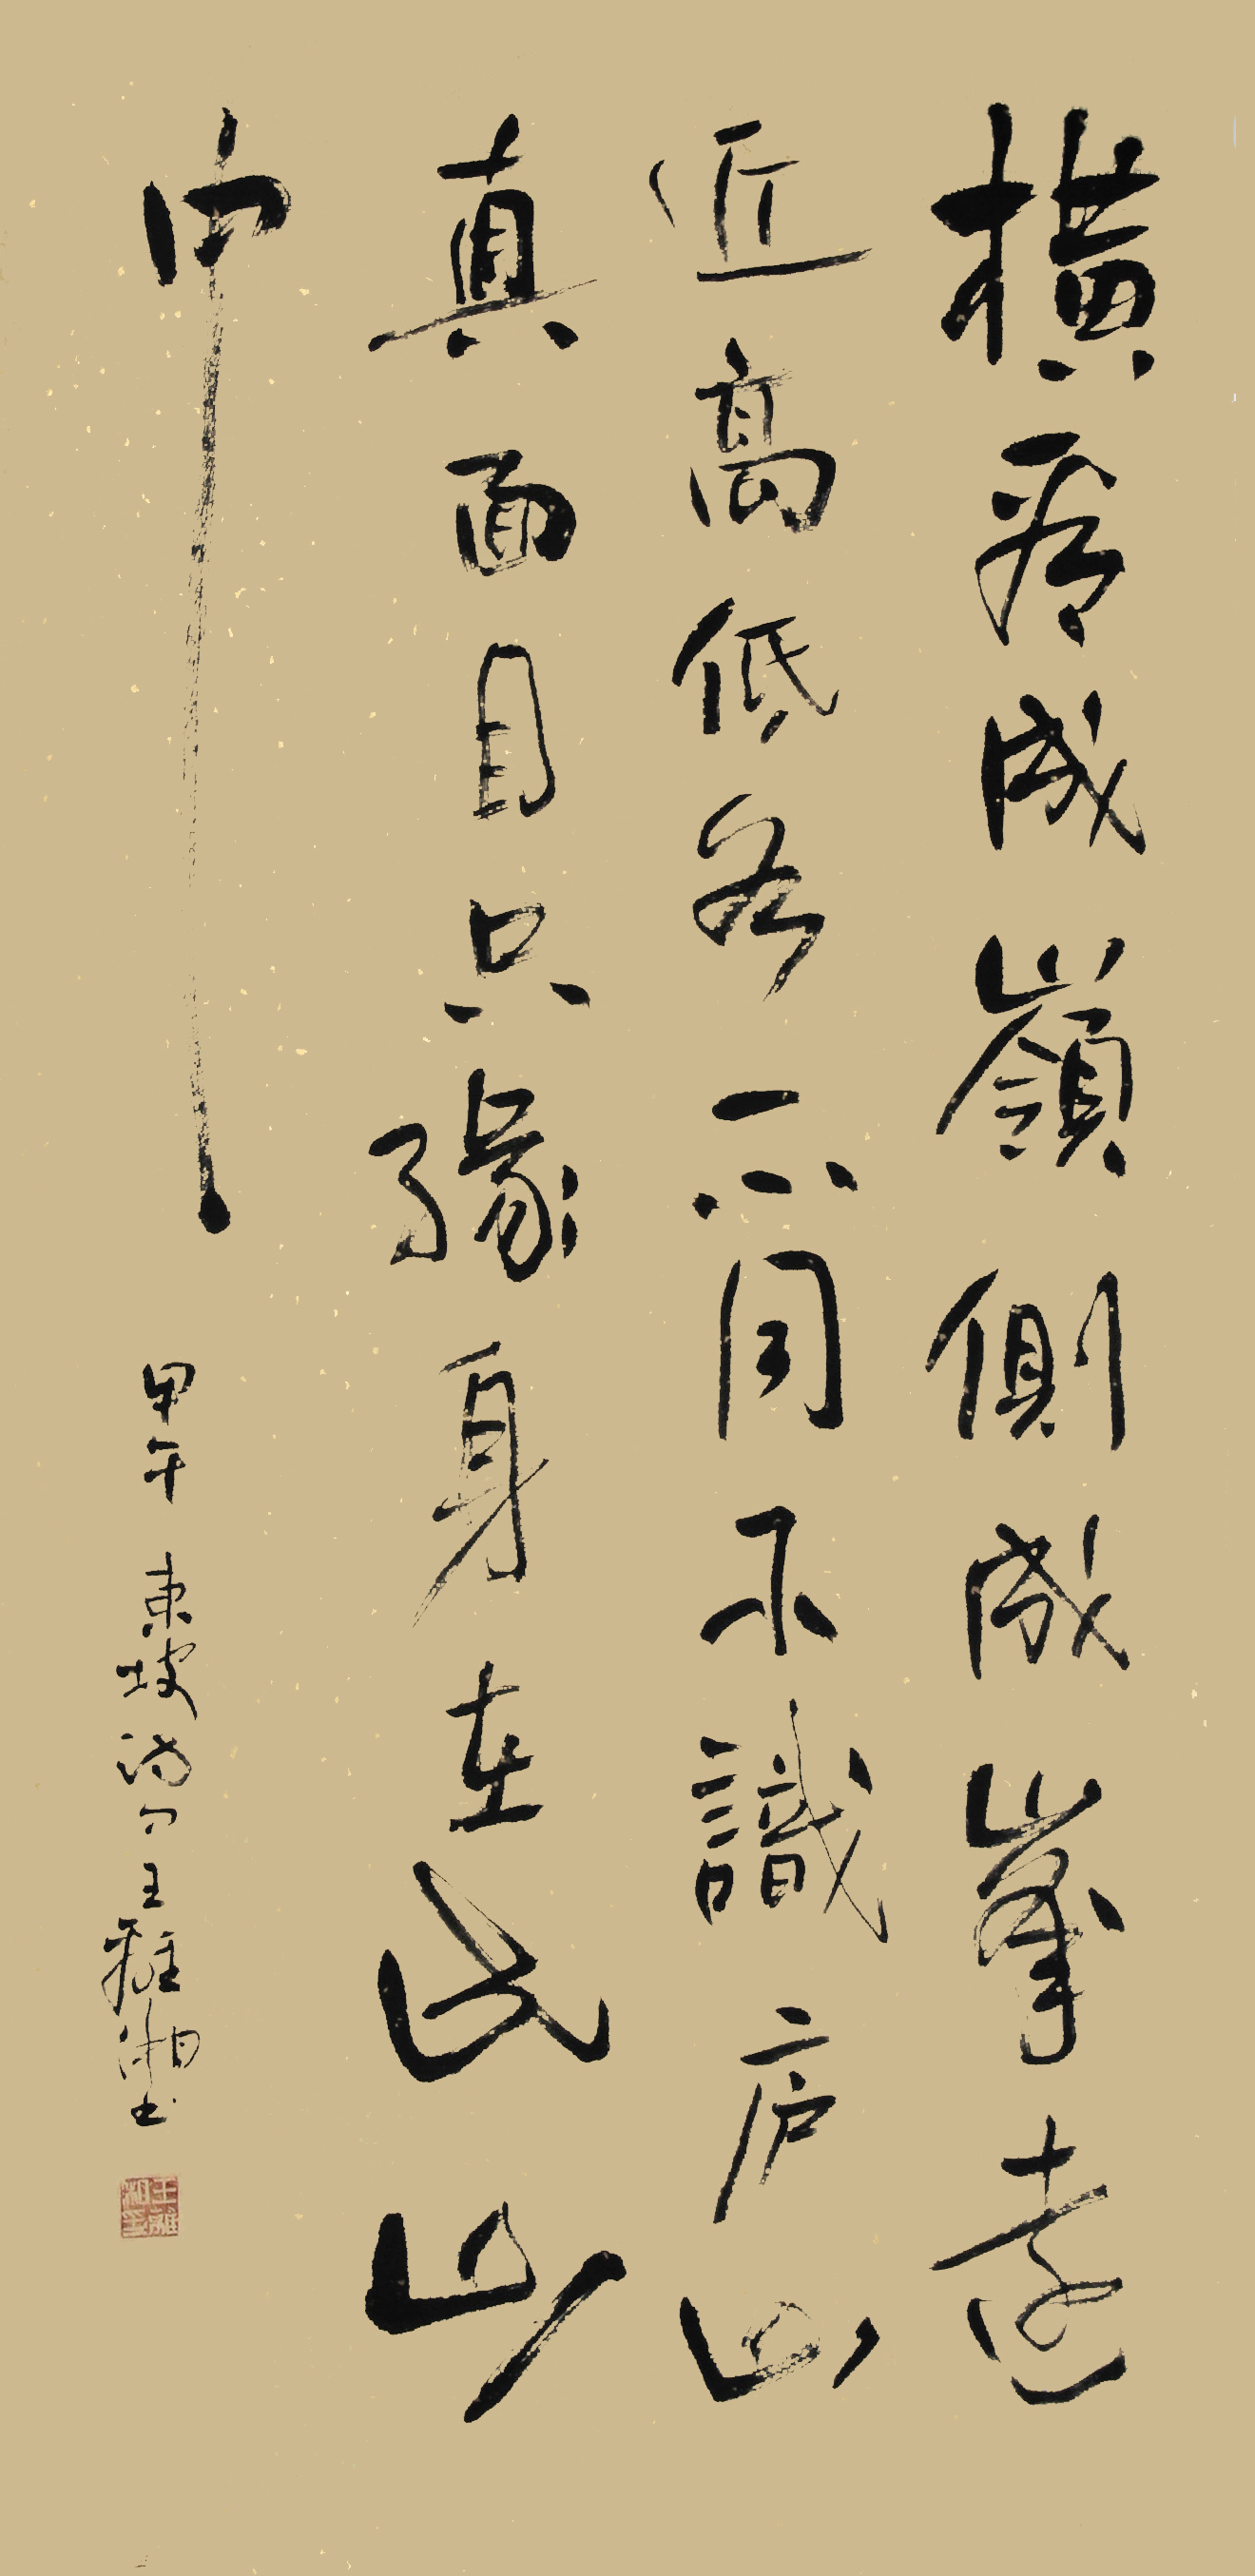 横看成嶺側成峯遠
近高低各不同不識庐山
真面目只緣身在此山
中
甲午 東坡詩句 王雅湘書